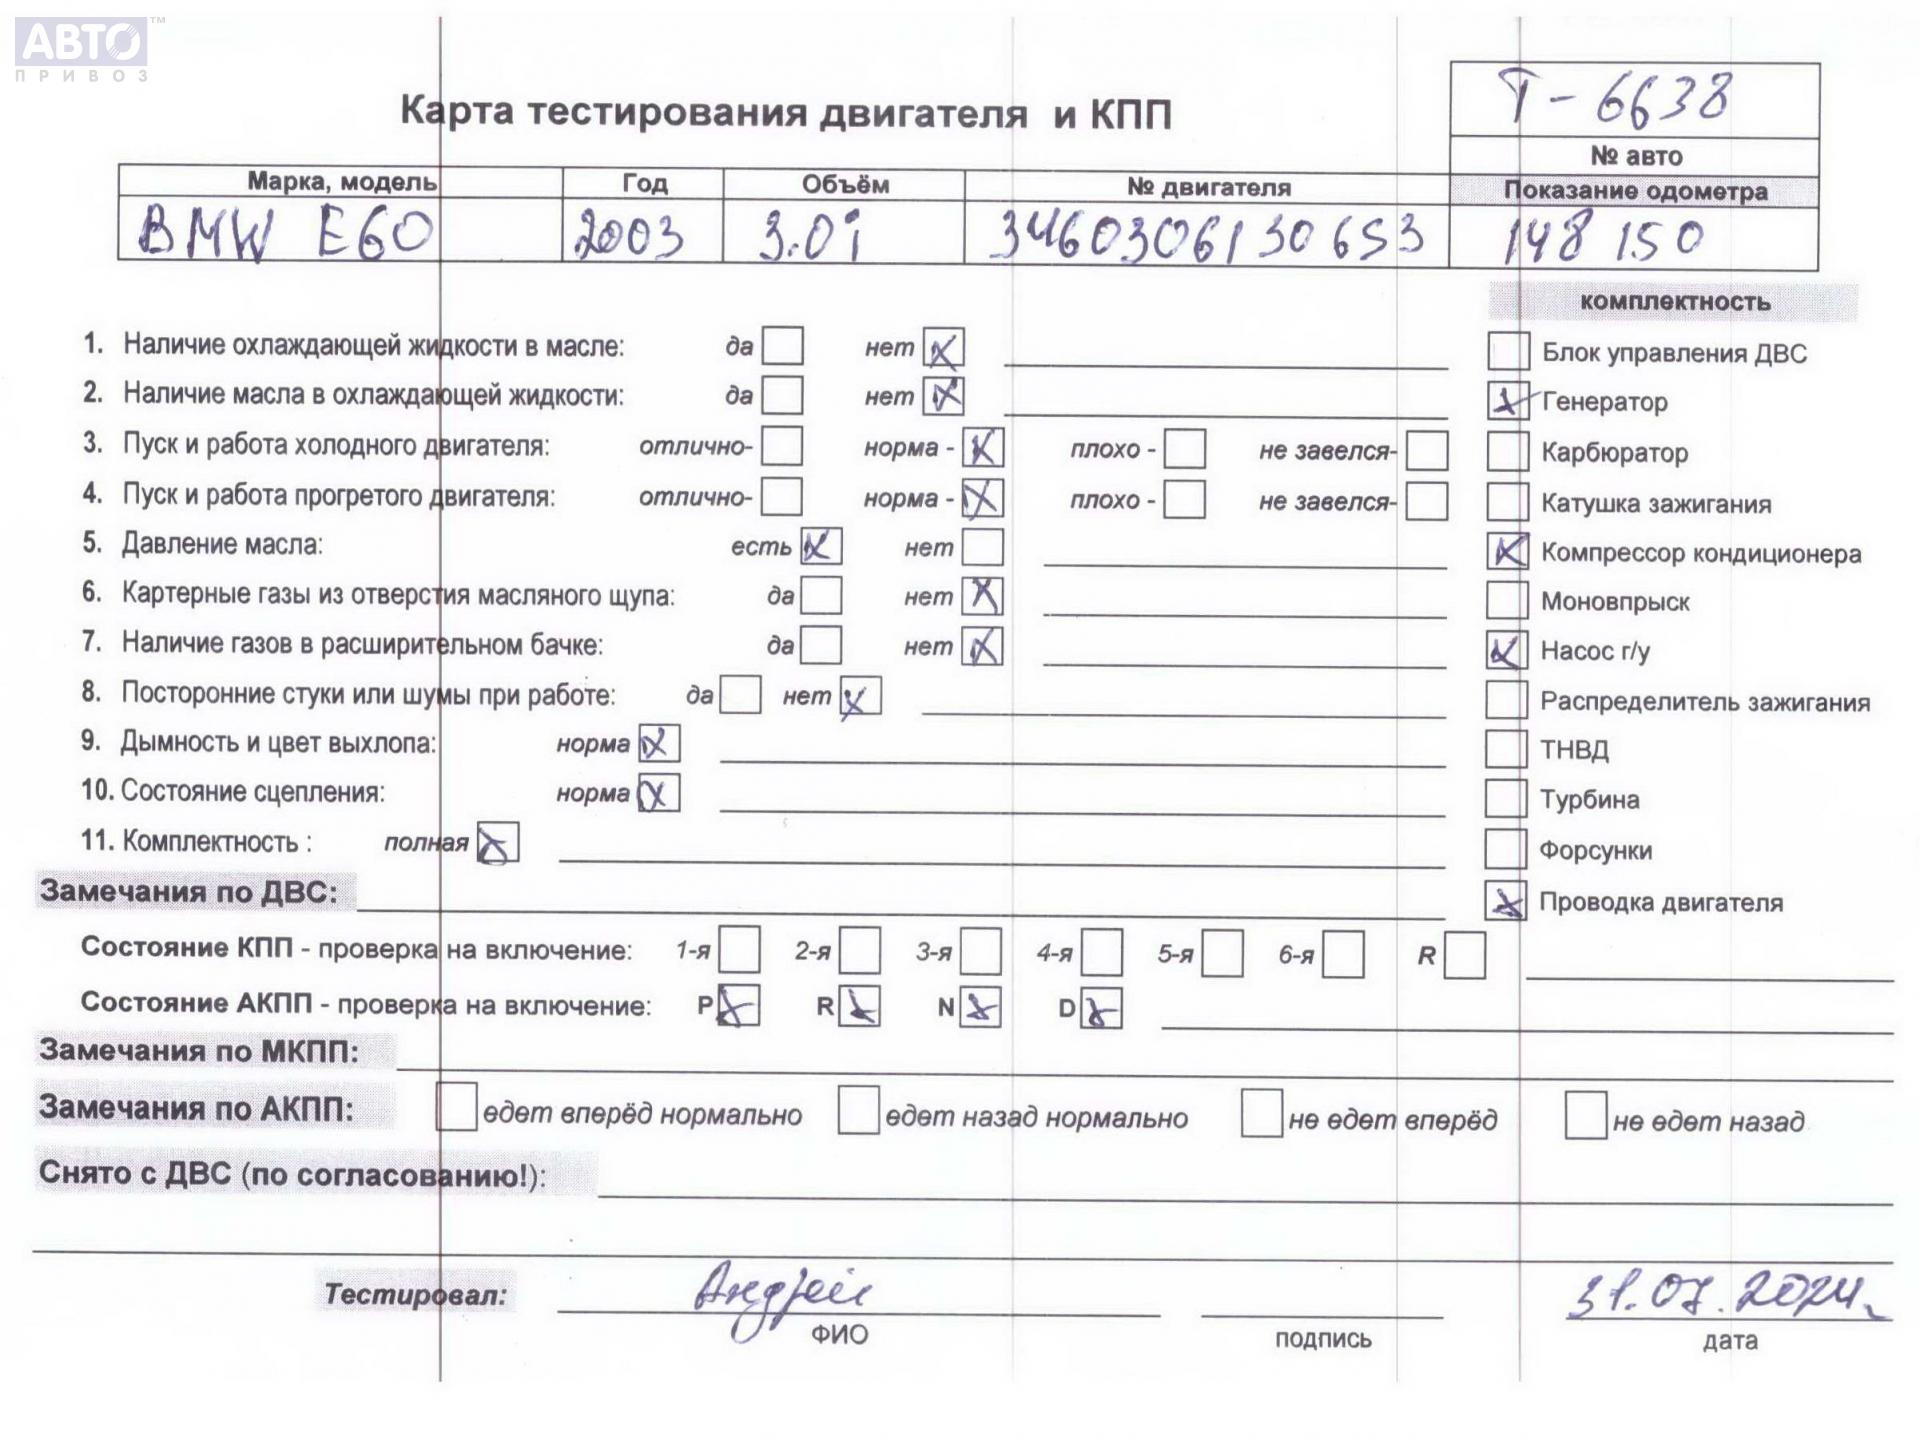 АВТО™
ПРИВОЗ
Карта тестирования двигателя и КПП
Т-6638
№ авто
Марка, модель Год Объём № двигателя Показание одометра
BMW E60 2003 3.0i 34603061306S3 148 150
комплектность
1. Наличие охлаждающей жидкости в масле: да нет x Блок управления ДВС
2. Наличие масла в охлаждающей жидкости: да нет x x Генератор
3. Пуск и работа холодного двигателя: отлично- норма - x плохо - не завелся- Карбюратор
4. Пуск и работа прогретого двигателя: отлично- норма - x плохо - не завелся- Катушка зажигания
5. Давление масла: есть x нет x Компрессор кондиционера
6. Картерные газы из отверстия масляного щупа: да нет x Моновпрыск
7. Наличие газов в расширительном бачке: да нет x x Насос г/у
8. Посторонние стуки или шумы при работе: да нет x Распределитель зажигания
9. Дымность и цвет выхлопа: норма x ТНВД
10. Состояние сцепления: норма x Турбина
11. Комплектность : полная x Форсунки
Замечания по ДВС: x Проводка двигателя
Состояние КПП - проверка на включение: 1-я 2-я 3-я 4-я 5-я 6-я R
Состояние АКПП - проверка на включение: P x R x N x D x
Замечания по МКПП:
Замечания по АКПП: едет вперёд нормально едет назад нормально не едет вперёд не едет назад
Снято с ДВС (по согласованию!):
Тестировал: Андрей 31.07.2024.
ФИО подпись дата